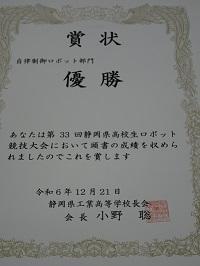 賞状
自律制御ロボット部門
優勝
あなたは第33回静岡県高校生ロボット
競技大会において頭書の成績を収めら
れましたのでこれを賞します
令和6年12月21日
静岡県工業高等学校長会
会長 小野 聡